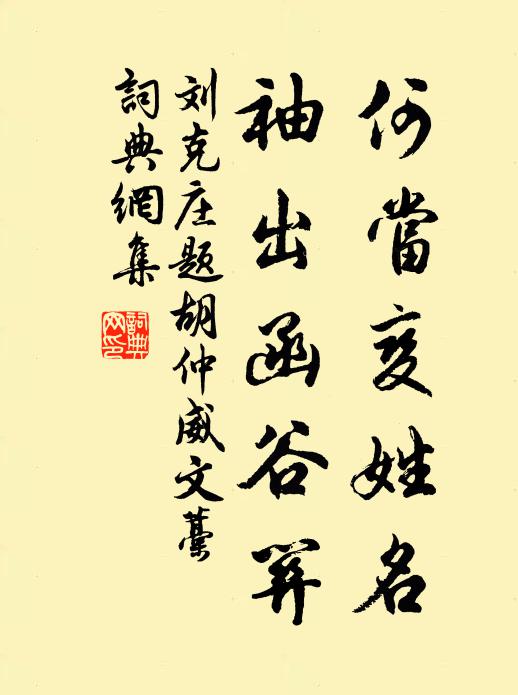 何當变姓名
袖出函谷关
刘克庄题胡仲威文藁
詞典網集
詞典
网印